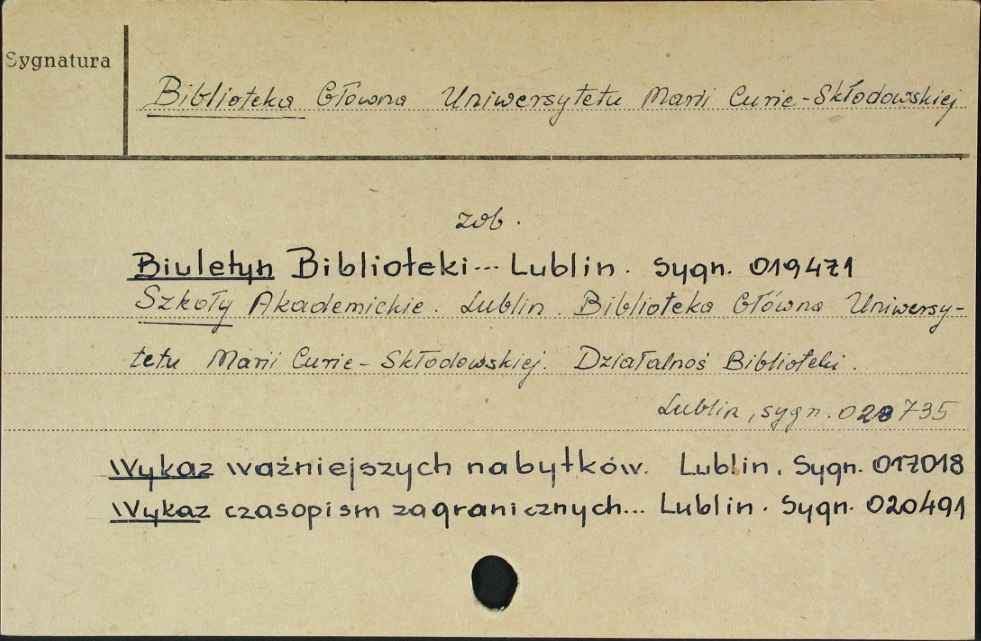 Sygnatura
Biblioteka Główna Uniwersytetu Marii Curie-Skłodowskiej
zob.
Biuletyn Biblioteki... Lublin. Sygn. 019471
Szkoły Akademickie. Lublin. Biblioteka Główna Uniwersy-
tetu Marii Curie-Skłodowskiej. Działalnoś Biblioteki.
Lublin, sygn. 028735
Wykaz ważniejszych nabytków. Lublin. Sygn. 017018
Wykaz czasopism zagranicznych... Lublin. Sygn. 020491